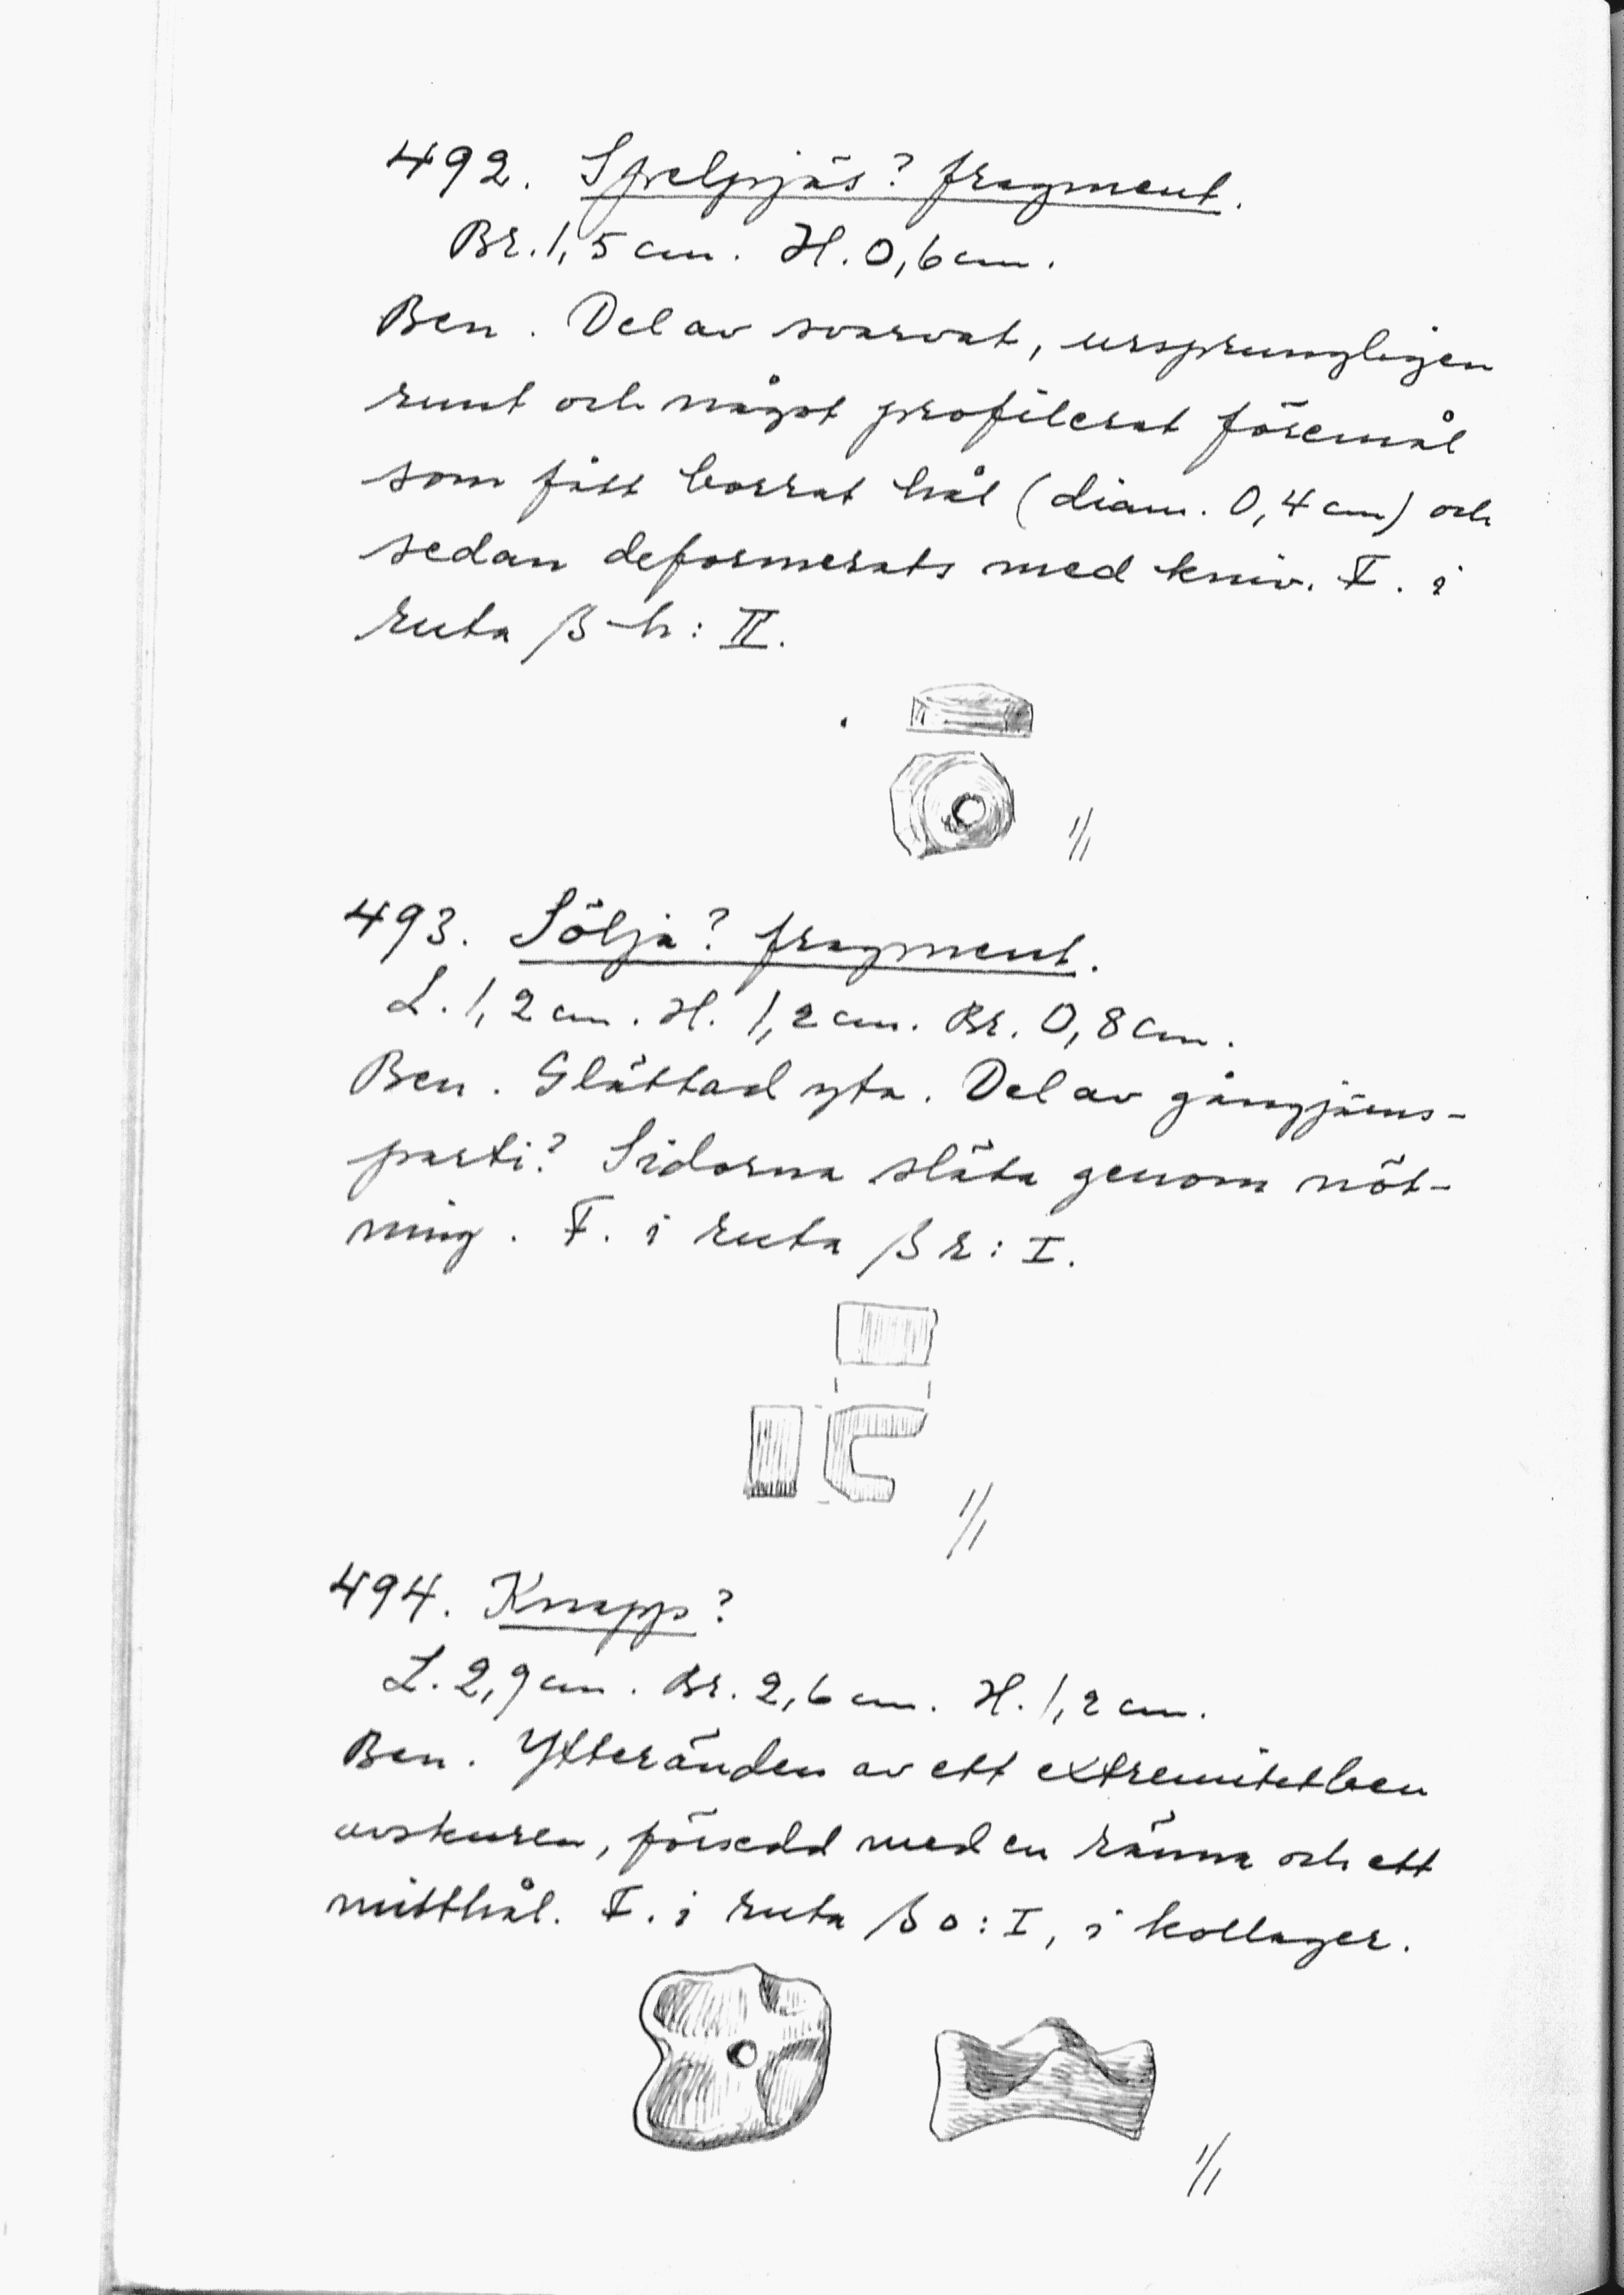 492. Spelpjäs? fragment.
Br. 1,5 cm. H. 0,6 cm.
Ben. Del av svarvat, ursprungligen
runt och något profilerat föremål
som fått borrat hål (diam. 0,4 cm) och
sedan deformerats med kniv. F. i
ruta β h: II.
1/1
493. Sölja? fragment.
L. 1,2 cm. H. 1,2 cm. Br. 0,8 cm.
Ben. Glättad yta. Del av gångjärns-
parti? Sidorna släta genom nöt-
ning. F. i ruta β r: I.
1/1
494. Knapp?
L. 2,9 cm. Br. 2,6 cm. H. 1,2 cm.
Ben. Ytteränden av ett extremitetben
avskuren, försedd med en ränna och ett
mitthål. F. i ruta β o: I, i kollager.
1/1